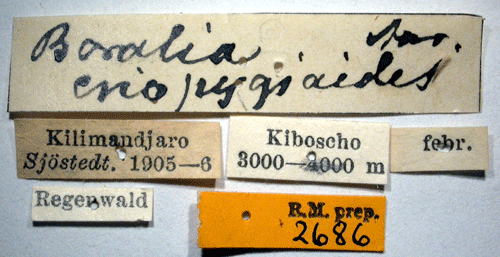 Boralia Aur.
eriopygioides
Kilimandjaro
Sjöstedt. 1905—6
Kiboscho
3000—4000 m
febr.
Regenwald
R.M. prep.
2686